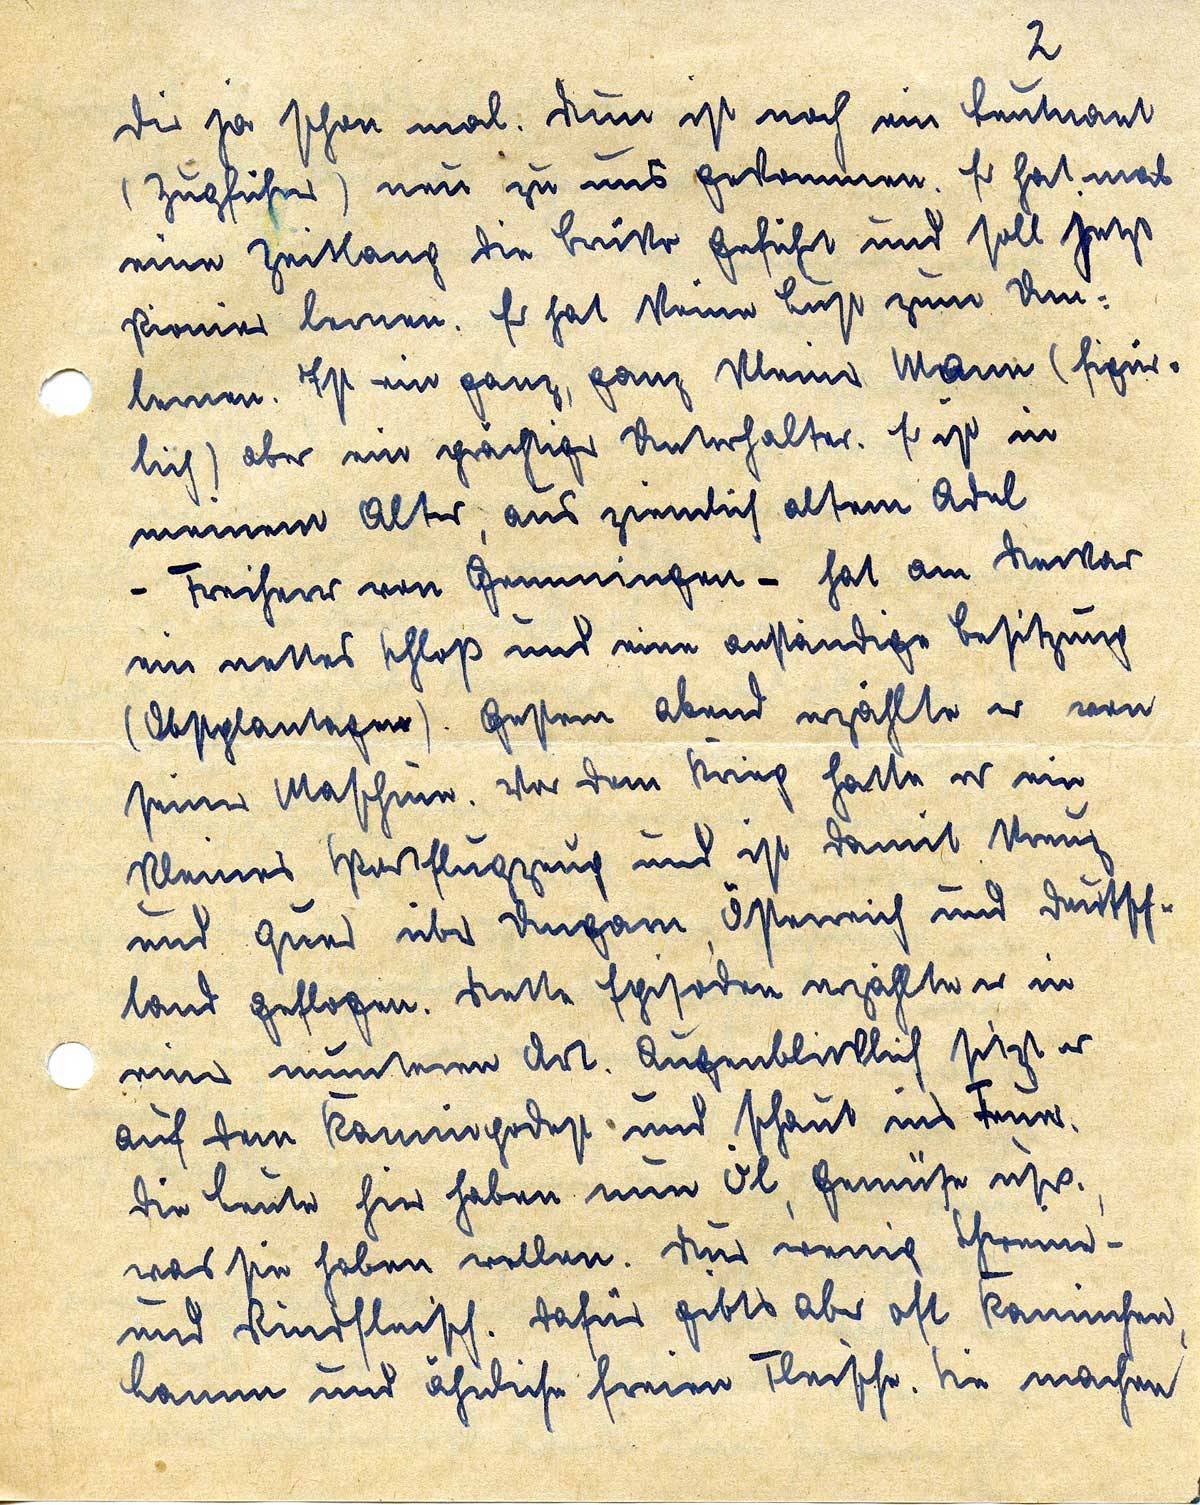 2
Dir ja schon mal. Nun ist noch ein Leutnant
(Zugführer) neu zu uns gekommen. Er hat mal
eine Zeitlang die Brüko geführt und soll jetzt
Pionier lernen. Er hat keine Lust zum Um=
lernen. Ist ein ganz, ganz kleiner Mann (figür=
lich) aber ein prächtiger Unterhalter. Er ist in
meinem Alter, aus ziemlich altem Adel
- Freiherr von Gemmingen - hat am Neckar
ein nettes Schloß und eine anständige Besitzung
(Obstplantagen). Gestern abend erzählte er von
seiner Maschine. Vor dem Krieg hatte er ein
kleines Sportflugzeug und ist damit kreuz
und quer über Ungarn, Österreich und Deutsch=
land geflogen. Nette Episoden erzählte er in
einer munteren Art. Augenblicklich sitzt er
auf dem Kaminpodest und schaut ins Feuer.
Die Leute hier haben nun Öl, Gemüse usw.,
was sie haben wollen. Nur wenig Schweine-
und Rindfleisch. Dafür gibts aber oft Kaninchen,
Lamm und ähnliche freien Fleische. Sie machen